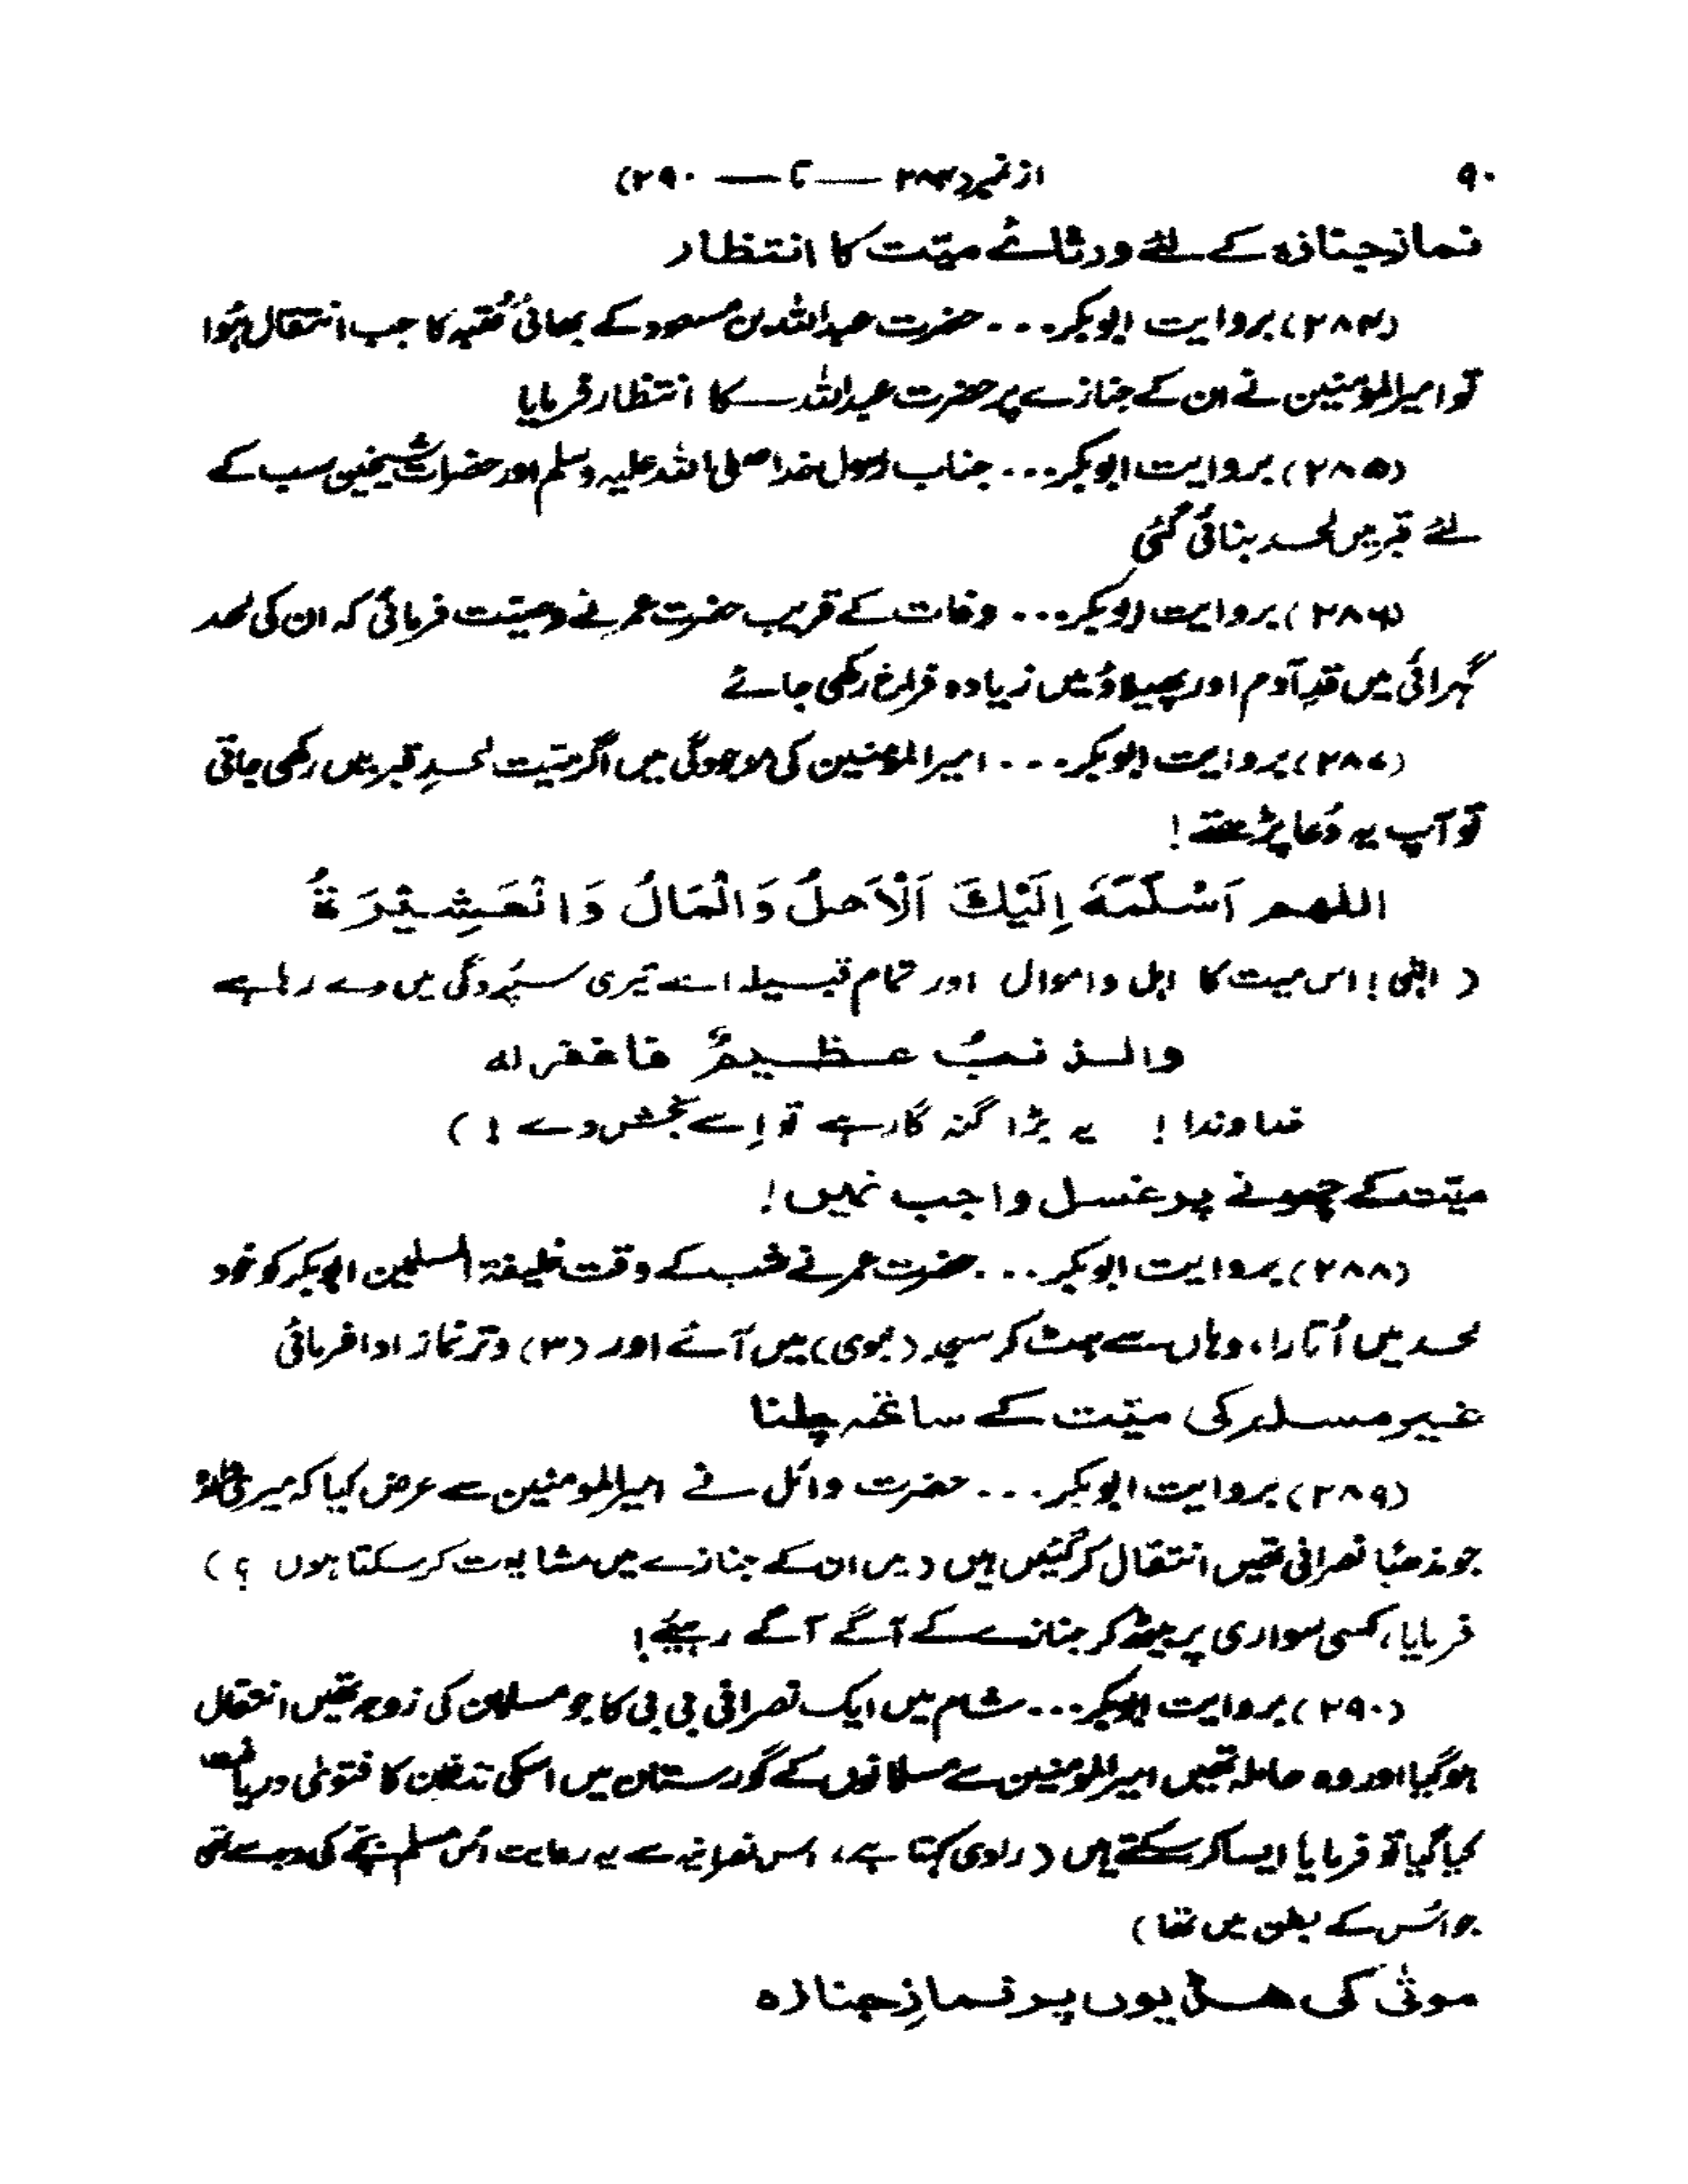 ۹۰ از نمبر (۲۸۴ — تا — ۲۹۰)
نماز جنازہ کے لئے ورثائے میّت کا انتظار
(۲۸۴) بروایت ابوبکر... حضرت عبداللہ بن مسعود کے بھائی عُتبہ کا جب انتقال ہُوا
تو امیرالمؤمنین نے ان کے جنازے پر حضرت عبداللہ کا انتظار فرمایا
(۲۸۵) بروایت ابوبکر... جناب رسول خدا صلی اللہ علیہ وسلم اور حضرات شیخین سب کے
لئے قبر میں لحد بنائی گئی
(۲۸۶) بروایت ابوبکر... وفات کے قریب حضرت عمر نے وصیّت فرمائی کہ ان کی لحد
گہرائی میں قدِ آدم اور پھیلاؤ میں زیادہ فراخ رکھی جائے
(۲۸۷) بروایت ابوبکر... امیرالمؤمنین کی موجودگی میں اگر میّت لحدِ قبر میں رکھی جاتی
تو آپ یہ دُعا پڑھتے!
اللهم اَسْلَمَهٗ اِلَيْكَ اَلْاَهلُ وَالْمَالُ وَالْعَشِيْرَةُ
( الٰہی! اس میت کا اہل و اموال اور تمام قبیلہ اسے تیری سپُردگی میں دے رہا ہے
والذنبُ عظيمٌ فاغفر له
خداوندا! یہ بڑا گنہ گار ہے تو اِسے بخش دے! )
میّت کے چھونے پر غسل واجب نہیں!
(۲۸۸) بروایت ابوبکر... حضرت عمر نے شب کے وقت خلیفۃ المسلمین ابوبکر کو خود
لحد میں اُتارا، وہاں سے ہٹ کر مسجد (نبوی) میں آئے اور (۳) وتر نماز ادا فرمائی
غیر مسلم کی میّت کے ساتھ چلنا
(۲۸۹) بروایت ابوبکر... حضرت وائل نے امیرالمومنین سے عرض کیا کہ میری والدہ
جو مذھبًا نصرانی تھیں انتقال کر گئیں ہیں (میں ان کے جنازے میں مشایعت کر سکتا ہوں ؟)
فرمایا، کسی سواری پر بیٹھ کر جنازے کے آگے آگے رہیئے!
(۲۹۰) بروایت ابوبکر... شام میں ایک نصرانی بی بی کا جو مسلمان کی زوجہ تھیں انتقال
ہو گیا اور وہ حاملہ تھیں امیرالمومنین سے مسلمانوں کے گورستان میں اسکی تدفین کا فتویٰ دریافت
کیا گیا تو فرمایا ایسا کر سکتے ہیں (راوی کہتا ہے، اس نصرانیہ سے یہ رعایت اُس مسلم بچّے کی وجہ سے تھی
جو اُس کے بطن میں تھا)
موتٰی کی ھڈیوں پر نمازِ جنازہ